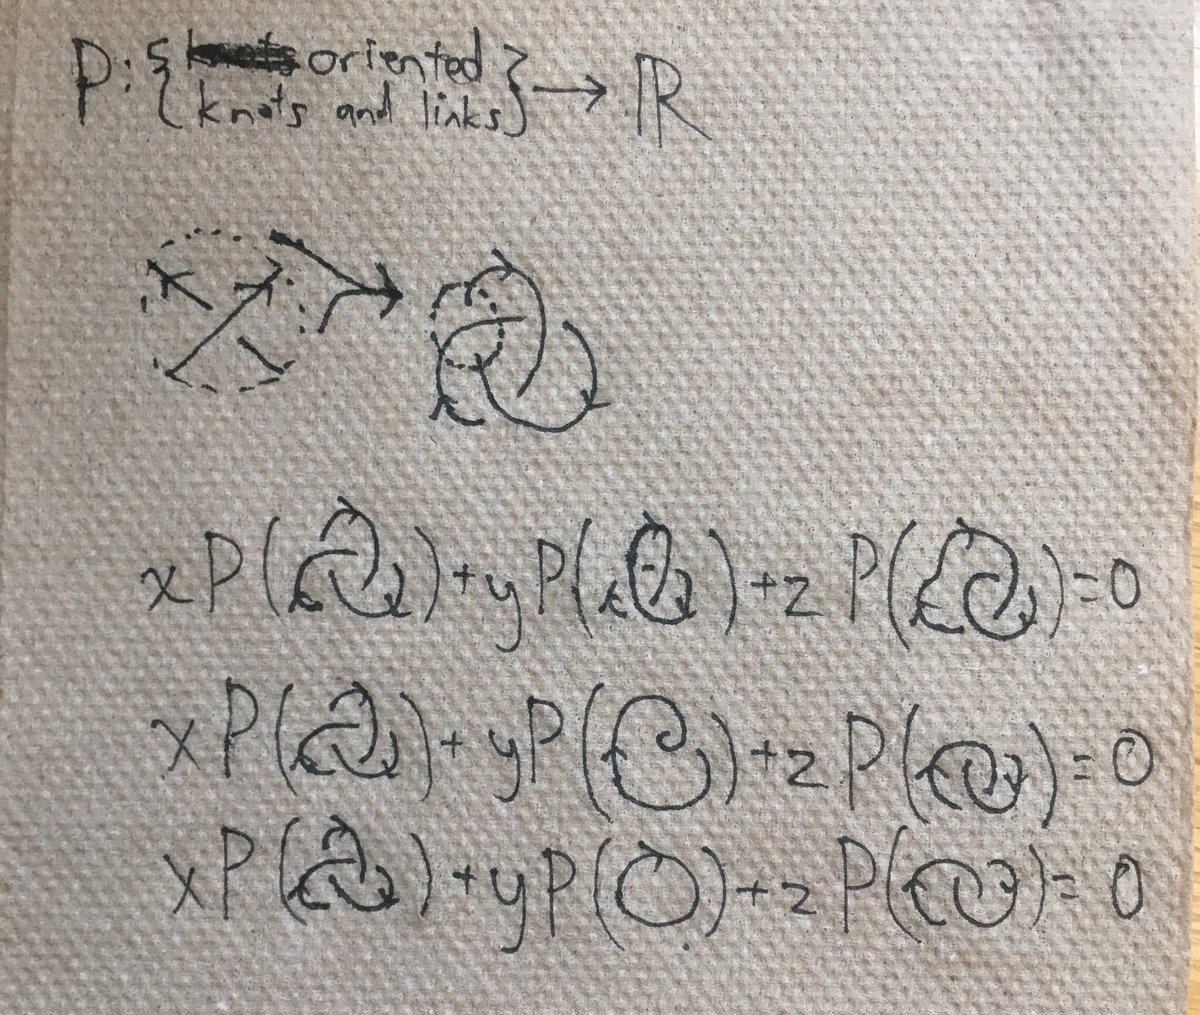 P: { oriented } → ℝ
knots and links
xP( ) + yP( ) + zP( ) = 0
xP( ) + yP( ) + zP( ) = 0
xP( ) + yP( ) + zP( ) = 0